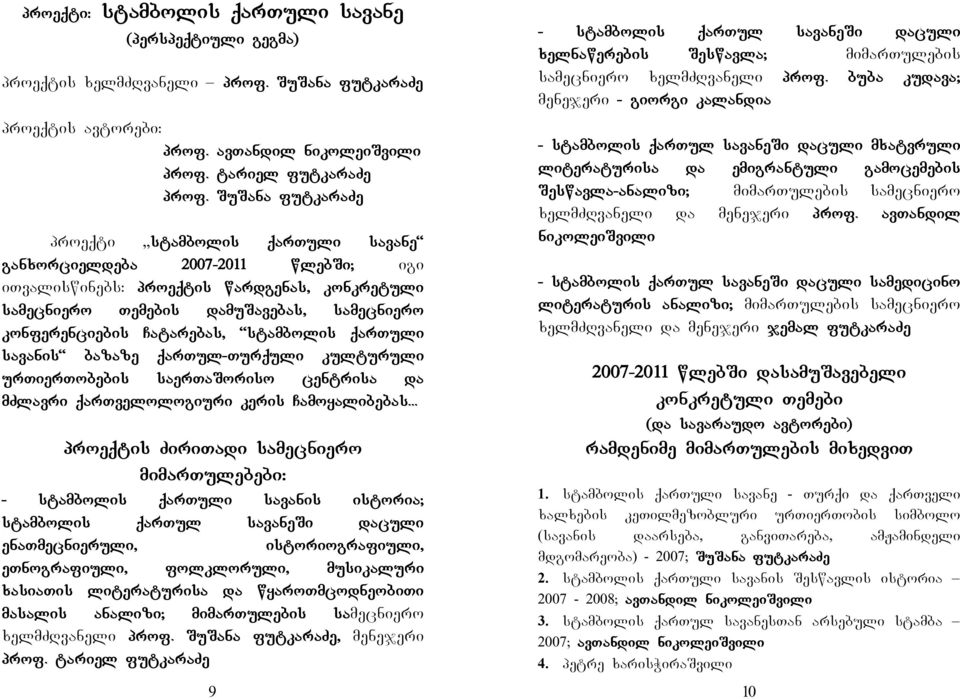 პროექტი: სტამბოლის ქართული სავანე
(პერსპექტიული გეგმა)
პროექტის ხელმძღვანელი – პროფ. შუშანა ფუტკარაძე
პროექტის ავტორები:
პროფ. ავთანდილ ნიკოლეიშვილი
პროფ. ტარიელ ფუტკარაძე
პროფ. შუშანა ფუტკარაძე
პროექტი „სტამბოლის ქართული სავანე“
განხორციელდება 2007-2011 წლებში; იგი
ითვალისწინებს: პროექტის წარდგენას, კონკრეტული
სამეცნიერო თემების დამუშავებას, სამეცნიერო
კონფერენციების ჩატარებას, “სტამბოლის ქართული
სავანის“ ბაზაზე ქართულ-თურქული კულტურული
ურთიერთობების საერთაშორისო ცენტრისა და
მძლავრი ქართველოლოგიური კერის ჩამოყალიბებას...
პროექტის ძირითადი სამეცნიერო
მიმართულებები:
- სტამბოლის ქართული სავანის ისტორია;
სტამბოლის ქართულ სავანეში დაცული
ენათმეცნიერული, ისტორიოგრაფიული,
ეთნოგრაფიული, ფოლკლორული, მუსიკალური
ხასიათის ლიტერატურისა და წყაროთმცოდნეობითი
მასალის ანალიზი; მიმართულების სამეცნიერო
ხელმძღვანელი პროფ. შუშანა ფუტკარაძე, მენეჯერი
პროფ. ტარიელ ფუტკარაძე
9
- სტამბოლის ქართულ სავანეში დაცული
ხელნაწერების შესწავლა; მიმართულების
სამეცნიერო ხელმძღვანელი პროფ. ბუბა კუდავა;
მენეჯერი - გიორგი კალანდია
- სტამბოლის ქართულ სავანეში დაცული მხატვრული
ლიტერატურისა და ემიგრანტული გამოცემების
შესწავლა-ანალიზი; მიმართულების სამეცნიერო
ხელმძღვანელი და მენეჯერი პროფ. ავთანდილ
ნიკოლეიშვილი
- სტამბოლის ქართულ სავანეში დაცული სამედიცინო
ლიტერატურის ანალიზი; მიმართულების სამეცნიერო
ხელმძღვანელი და მენეჯერი ჯემალ ფუტკარაძე
2007-2011 წლებში დასამუშავებელი
კონკრეტული თემები
(და სავარაუდო ავტორები)
რამდენიმე მიმართულების მიხედვით
1. სტამბოლის ქართული სავანე - თურქი და ქართველი
ხალხების კეთილმეზობლური ურთიერთობის სიმბოლო
(სავანის დაარსება, განვითარება, ამჟამინდელი
მდგომარეობა) - 2007; შუშანა ფუტკარაძე
2. სტამბოლის ქართული სავანის შესწავლის ისტორია –
2007 - 2008; ავთანდილ ნიკოლეიშვილი
3. სტამბოლის ქართულ სავანესთან არსებული სტამბა –
2007; ავთანდილ ნიკოლეიშვილი
4. პეტრე ხარისჭირაშვილი
10